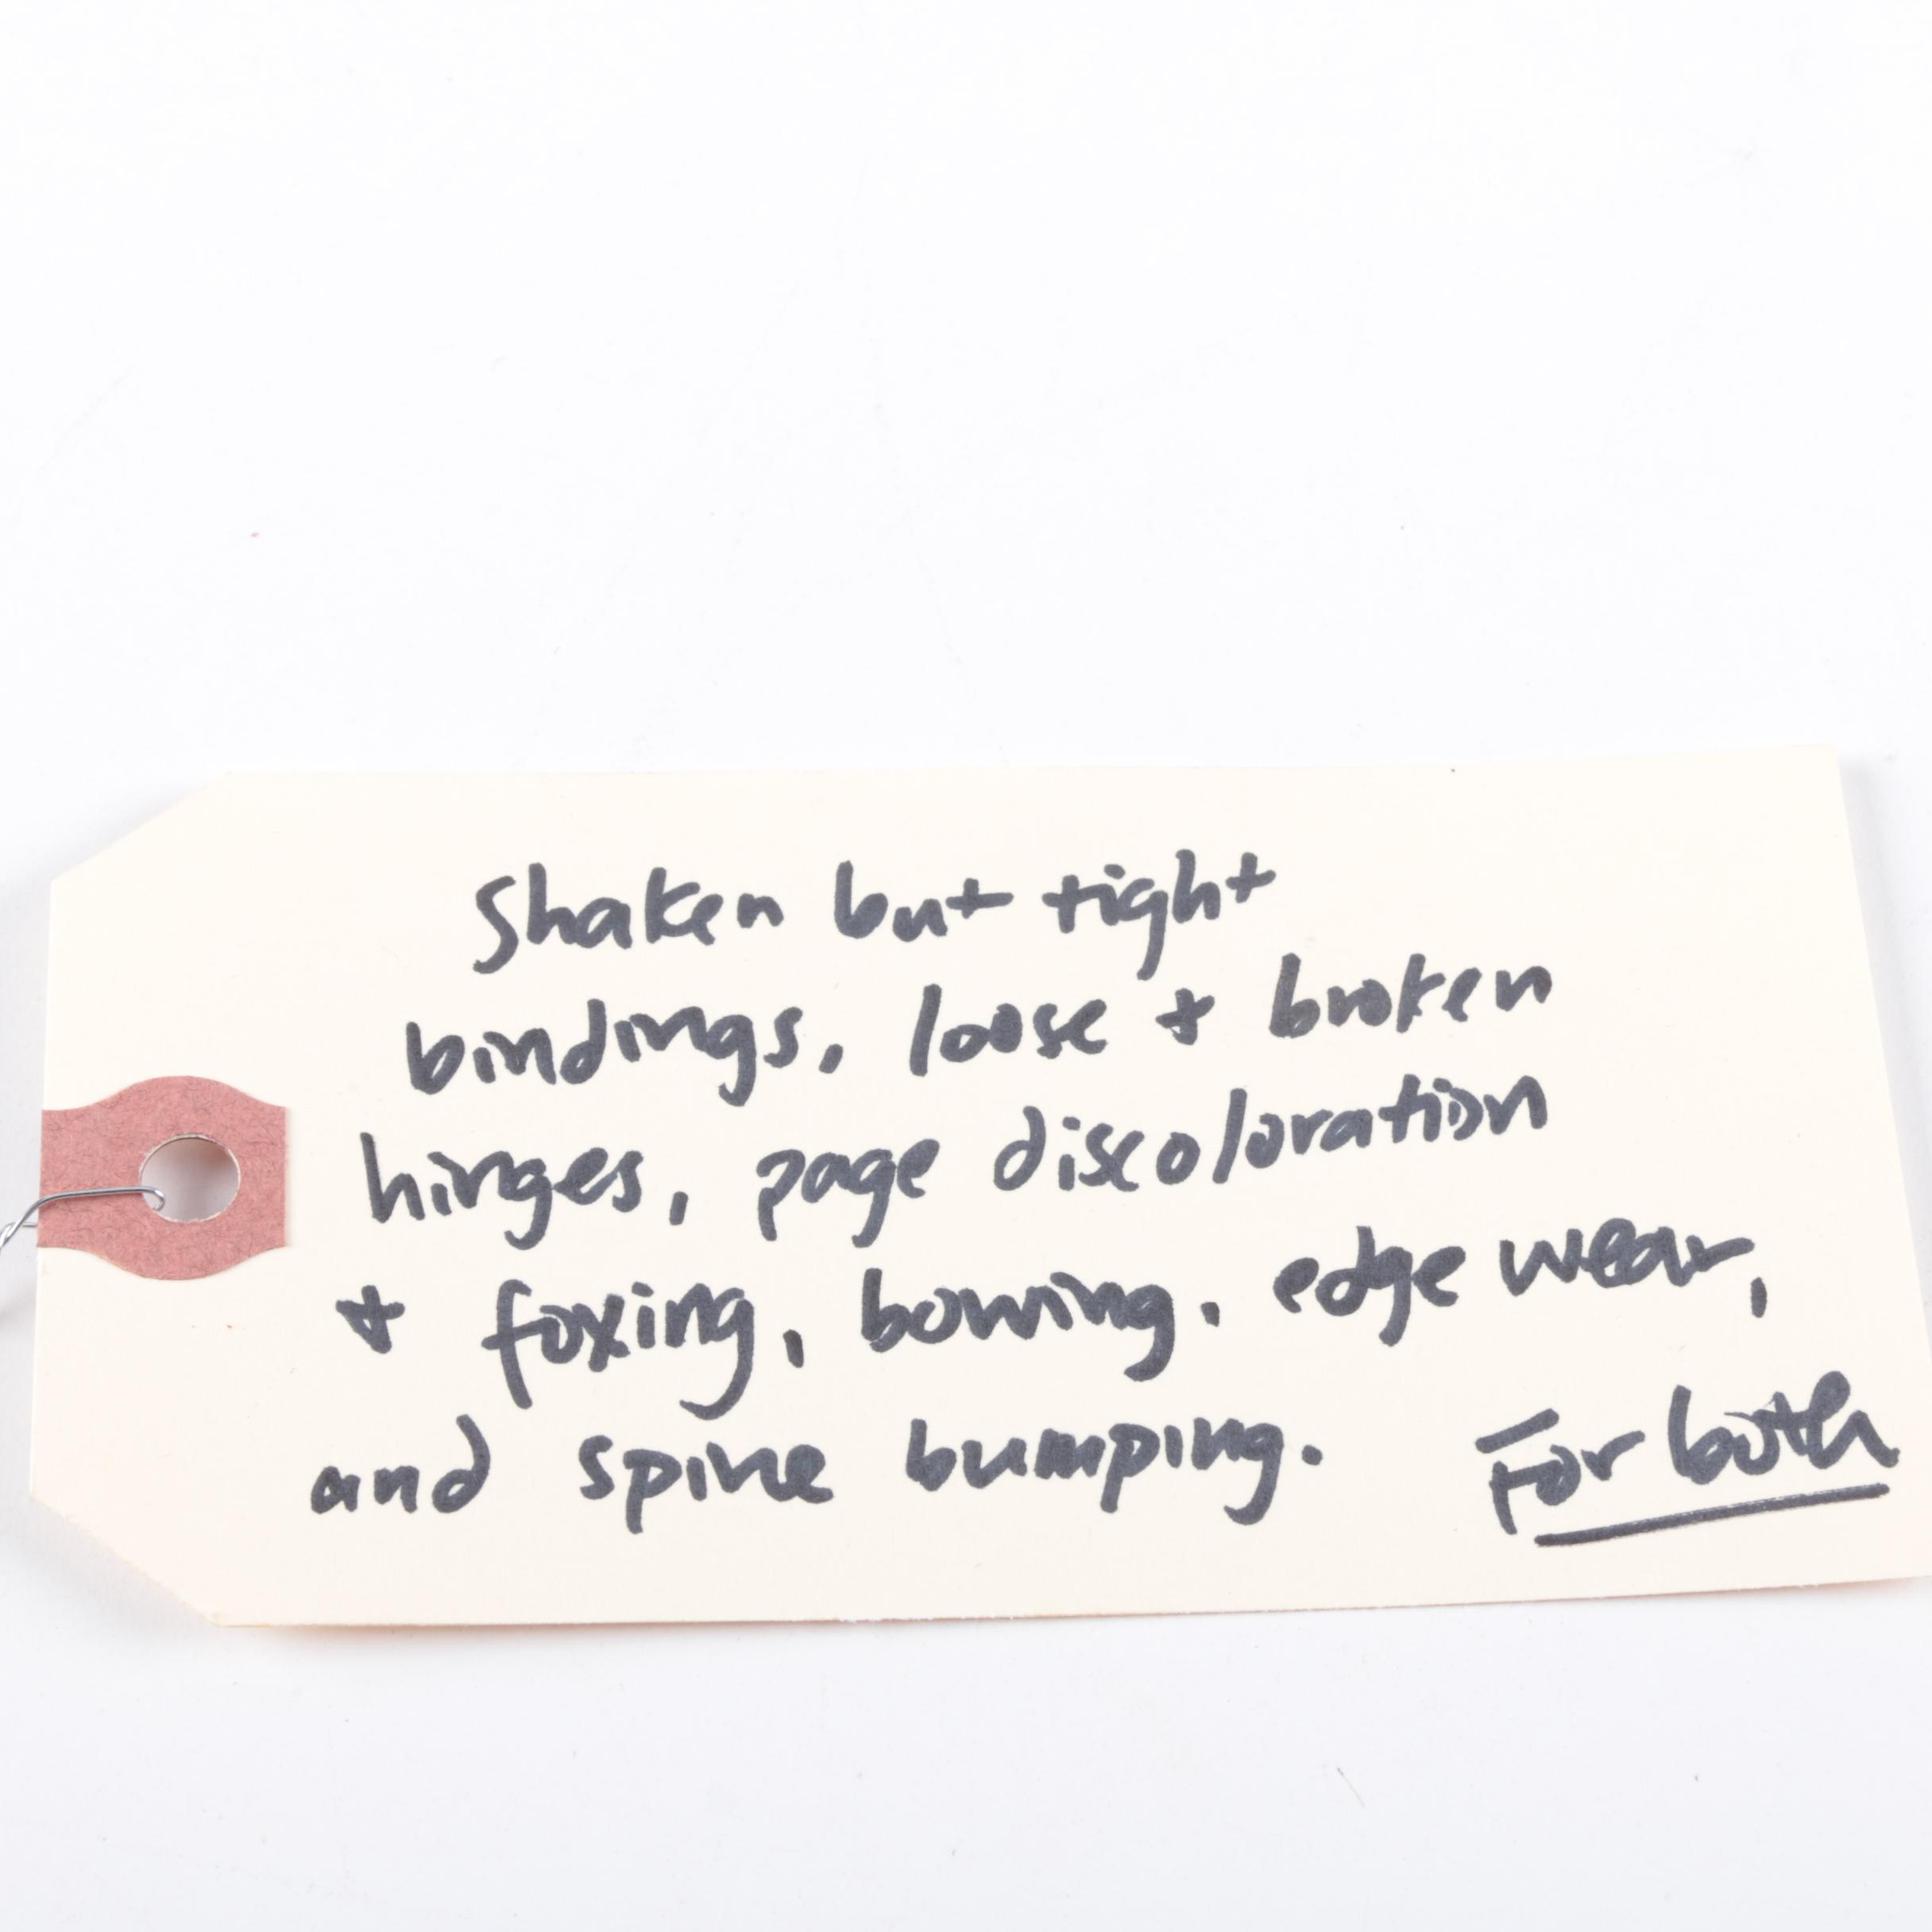 Shaken but tight
bindings, loose + broken
hinges, page discoloration
+ foxing, bowing, edge wear,
and spine bumping. For both